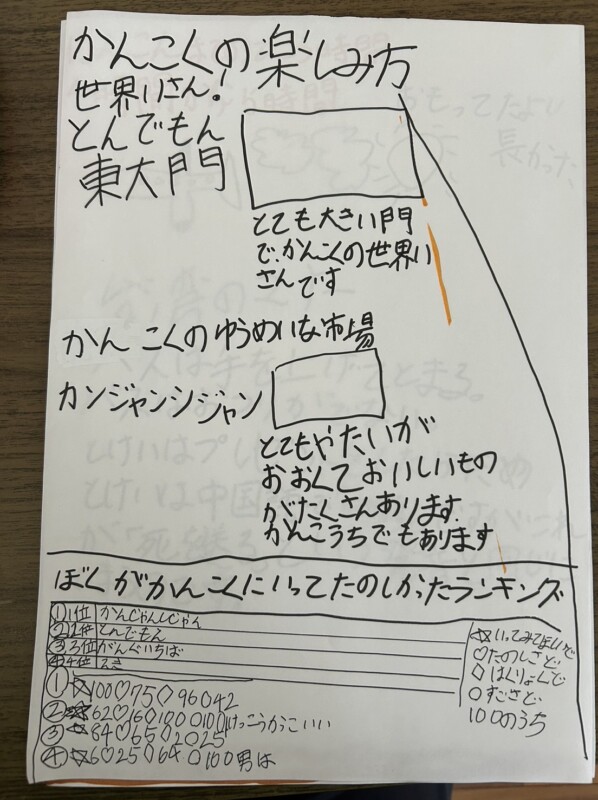 かんこくの楽しみ方
世界いさん!
とんでもん
東大門
とても大きい門
で、かんこくの世界い
さんです
かんこくのゆうめいな市場
カンジャンシジャン
とてもやたいが
おおくておいしいもの
がたくさんあります.
かんこうちでもあります
ぼくがかんこくにいってたのしかったランキング
①1位 かんじゃんしじゃん
②2位 とんでもん
③3位 がんぐいちば
④4位
☆いってみてほしいど
♡たのしさど
◇はくりょくど
○すごさど
100のうち
①☆100♡75◇96○42
②☆62♡16◇100○100けっこうかっこいい
③☆84♡65◇20○25
④☆6♡25◇64○100男は